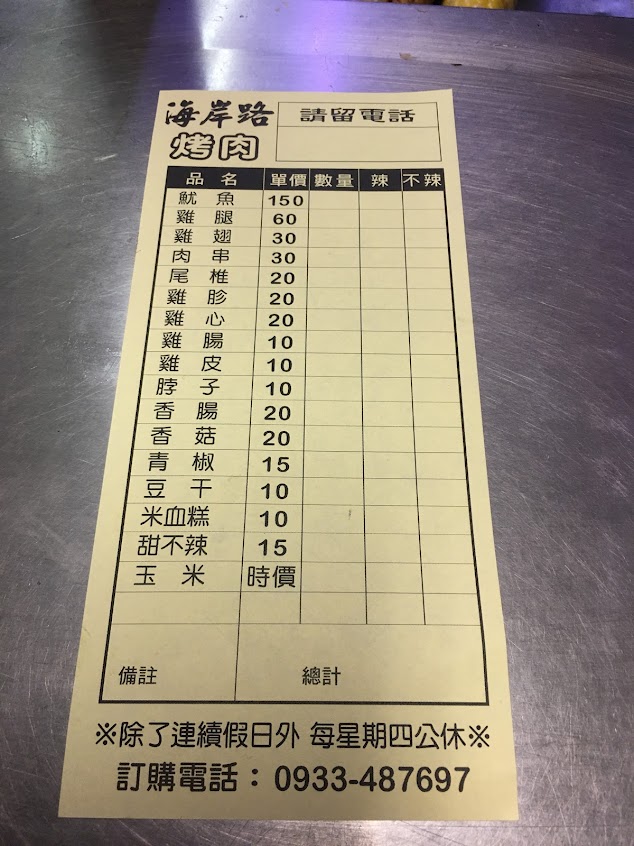 海岸路
烤肉
請留電話
品名 單價 數量 辣 不辣
魷魚 150
雞腿 60
雞翅 30
肉串 30
尾椎 20
雞胗 20
雞心 20
雞腸 10
雞皮 10
脖子 10
香腸 20
香菇 20
青椒 15
豆干 10
米血糕 10
甜不辣 15
玉米 時價
備註 總計
※除了連續假日外 每星期四公休※
訂購電話：0933-487697